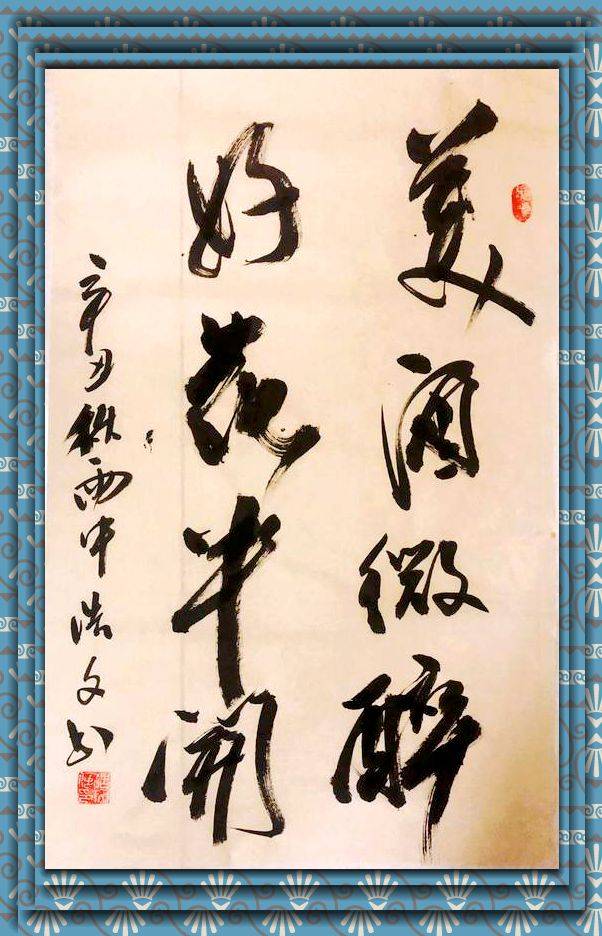 美酒微醉
好花半开
辛丑秋雨中浩文书